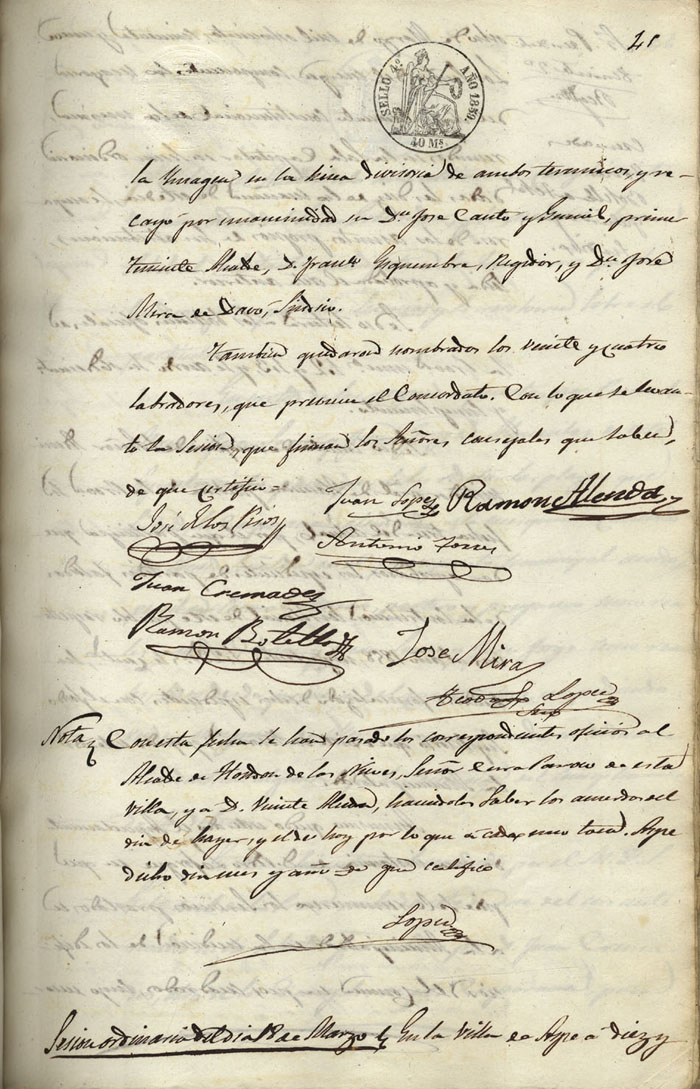 21
SELLO 4º AÑO 1859.
40 Ms
la Imagen en la linea divisoria de ambos terminos, y re-
cayó por unanimidad en Dn. Jose Canto y Gumiel, primer
teniente Alcalde, D. Franco. Esquembre, Regidor, y Dn. José
Mira de Davó, Sindico.
Tambien quedaron nombrados los veinte y cuatro
labradores, que previene el Concordato. Con lo que se levan-
tó la Sesion, que firman los Señores consejales que saben,
de que certifico=
Juan Lopez Ramon Alenda
José de los Rios
Antonio Torres
Juan Cremades
Ramon Botella
Jose Mira
Lopez
Srio
Nota Con esta fecha se han pasado los correspondientes oficios al
Alcalde de Hondon de las Nieves, Señor Cura Parroco de esta
villa, y a D. Vicente Alenda, haciendoles saber los acuerdos del
dia de hayer, y el de hoy por lo que a cada uno toca. Aspe
dicho dia mes y año de que certifico
Lopez
Sesion ordinaria del dia 18 de Marzo En la Villa de Aspe a diez y